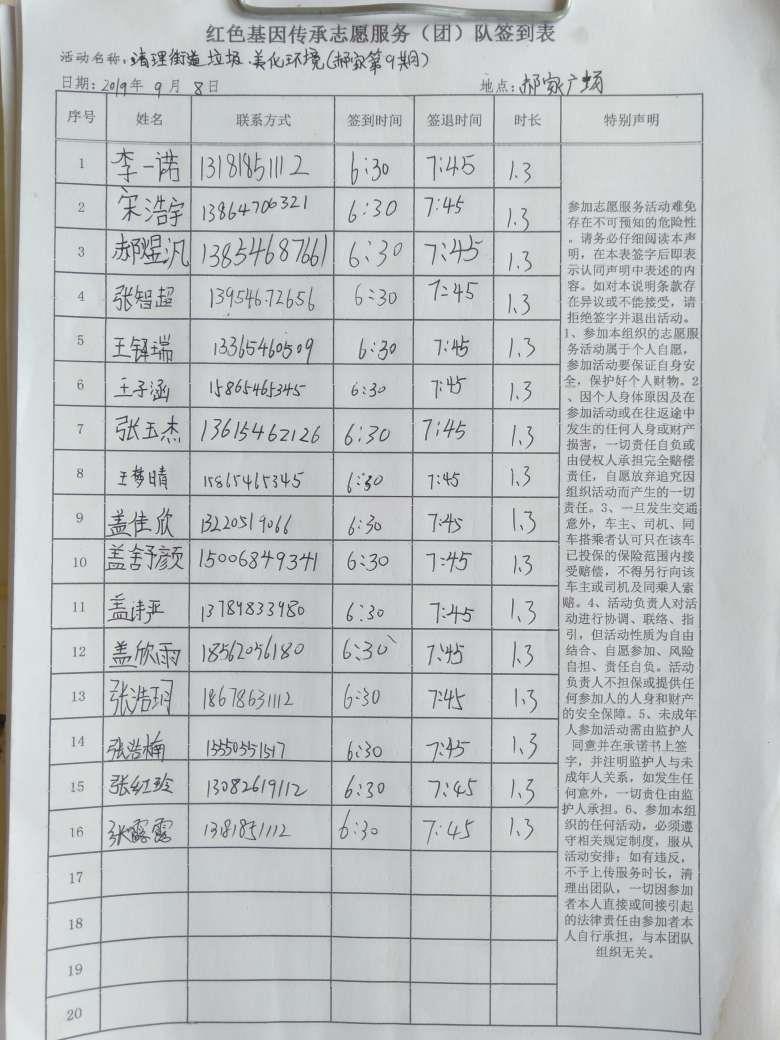 红色基因传承志愿服务（团）队签到表
活动名称：清理街道垃圾.美化环境(郝家第9期)
日期：2019年 9 月 8 日 地点：郝家广场
序号 姓名 联系方式 签到时间 签退时间 时长 特别声明
1 李一诺 13181851112 6:30 7:45 1.3
2 宋浩宇 13864706321 6:30 7:45 1.3
3 郝煜汎 13854687661 6:30 7:45 1.3
4 张智超 13954672656 6:30 7:45 1.3
5 王铎瑞 13365460509 6:30 7:45 1.3
6 王子涵 15865465345 6:30 7:45 1.3
7 张玉杰 13615462126 6:30 7:45 1.3
8 王梦晴 15865465345 6:30 7:45 1.3
9 盖佳欣 13220519066 6:30 7:45 1.3
10 盖舒颜 15006849341 6:30 7:45 1.3
11 盖 13789833980 6:30 7:45 1.3
12 盖欣雨 18562056180 6:30 7:45 1.3
13 张浩玥 18678631112 6:30 7:45 1.3
14 张浩楠 15550551517 6:30 7:45 1.3
15 张红玲 13082619112 6:30 7:45 1.3
16 张露露 13181851112 6:30 7:45 1.3
17
18
19
20
参加志愿服务活动难免
存在不可预知的危险性
。请务必仔细阅读本声
明，在本表签字后即表
示认同声明中表述的内
容。如对本说明条款存
在异议或不能接受，请
拒绝签字并退出活动。
1、参加本组织的志愿服
务活动属于个人自愿，
参加活动要保证自身安
全，保护好个人财物。2
、因个人身体原因及在
参加活动或在往返途中
发生的任何人身或财产
损害，一切责任自负或
由侵权人承担完全赔偿
责任，自愿放弃追究因
组织活动而产生的一切
责任。3、一旦发生交通
意外，车主、司机、同
车搭乘者认可只在该车
已投保的保险范围内接
受赔偿，不得另行向该
车主或司机及同乘人索
赔。4、活动负责人对活
动进行协调、联络、指
引，但活动性质为自由
结合、自愿参加、风险
自担、责任自负。活动
负责人不担保或提供任
何参加人的人身和财产
的安全保障。5、未成年
人参加活动需由监护人
同意并在承诺书上签
字，并注明监护人与未
成年人关系，如发生任
何意外，一切责住由监
护人承担。6、参加本组
织的任何活动，必须遵
守相关规定制度，服从
活动安排；如有违反，
不予上传服务时长，清
理出团队，一切因参加
者本人直接或间接引起
的法律责任由参加者本
人自行承担，与本团队
组织无关。